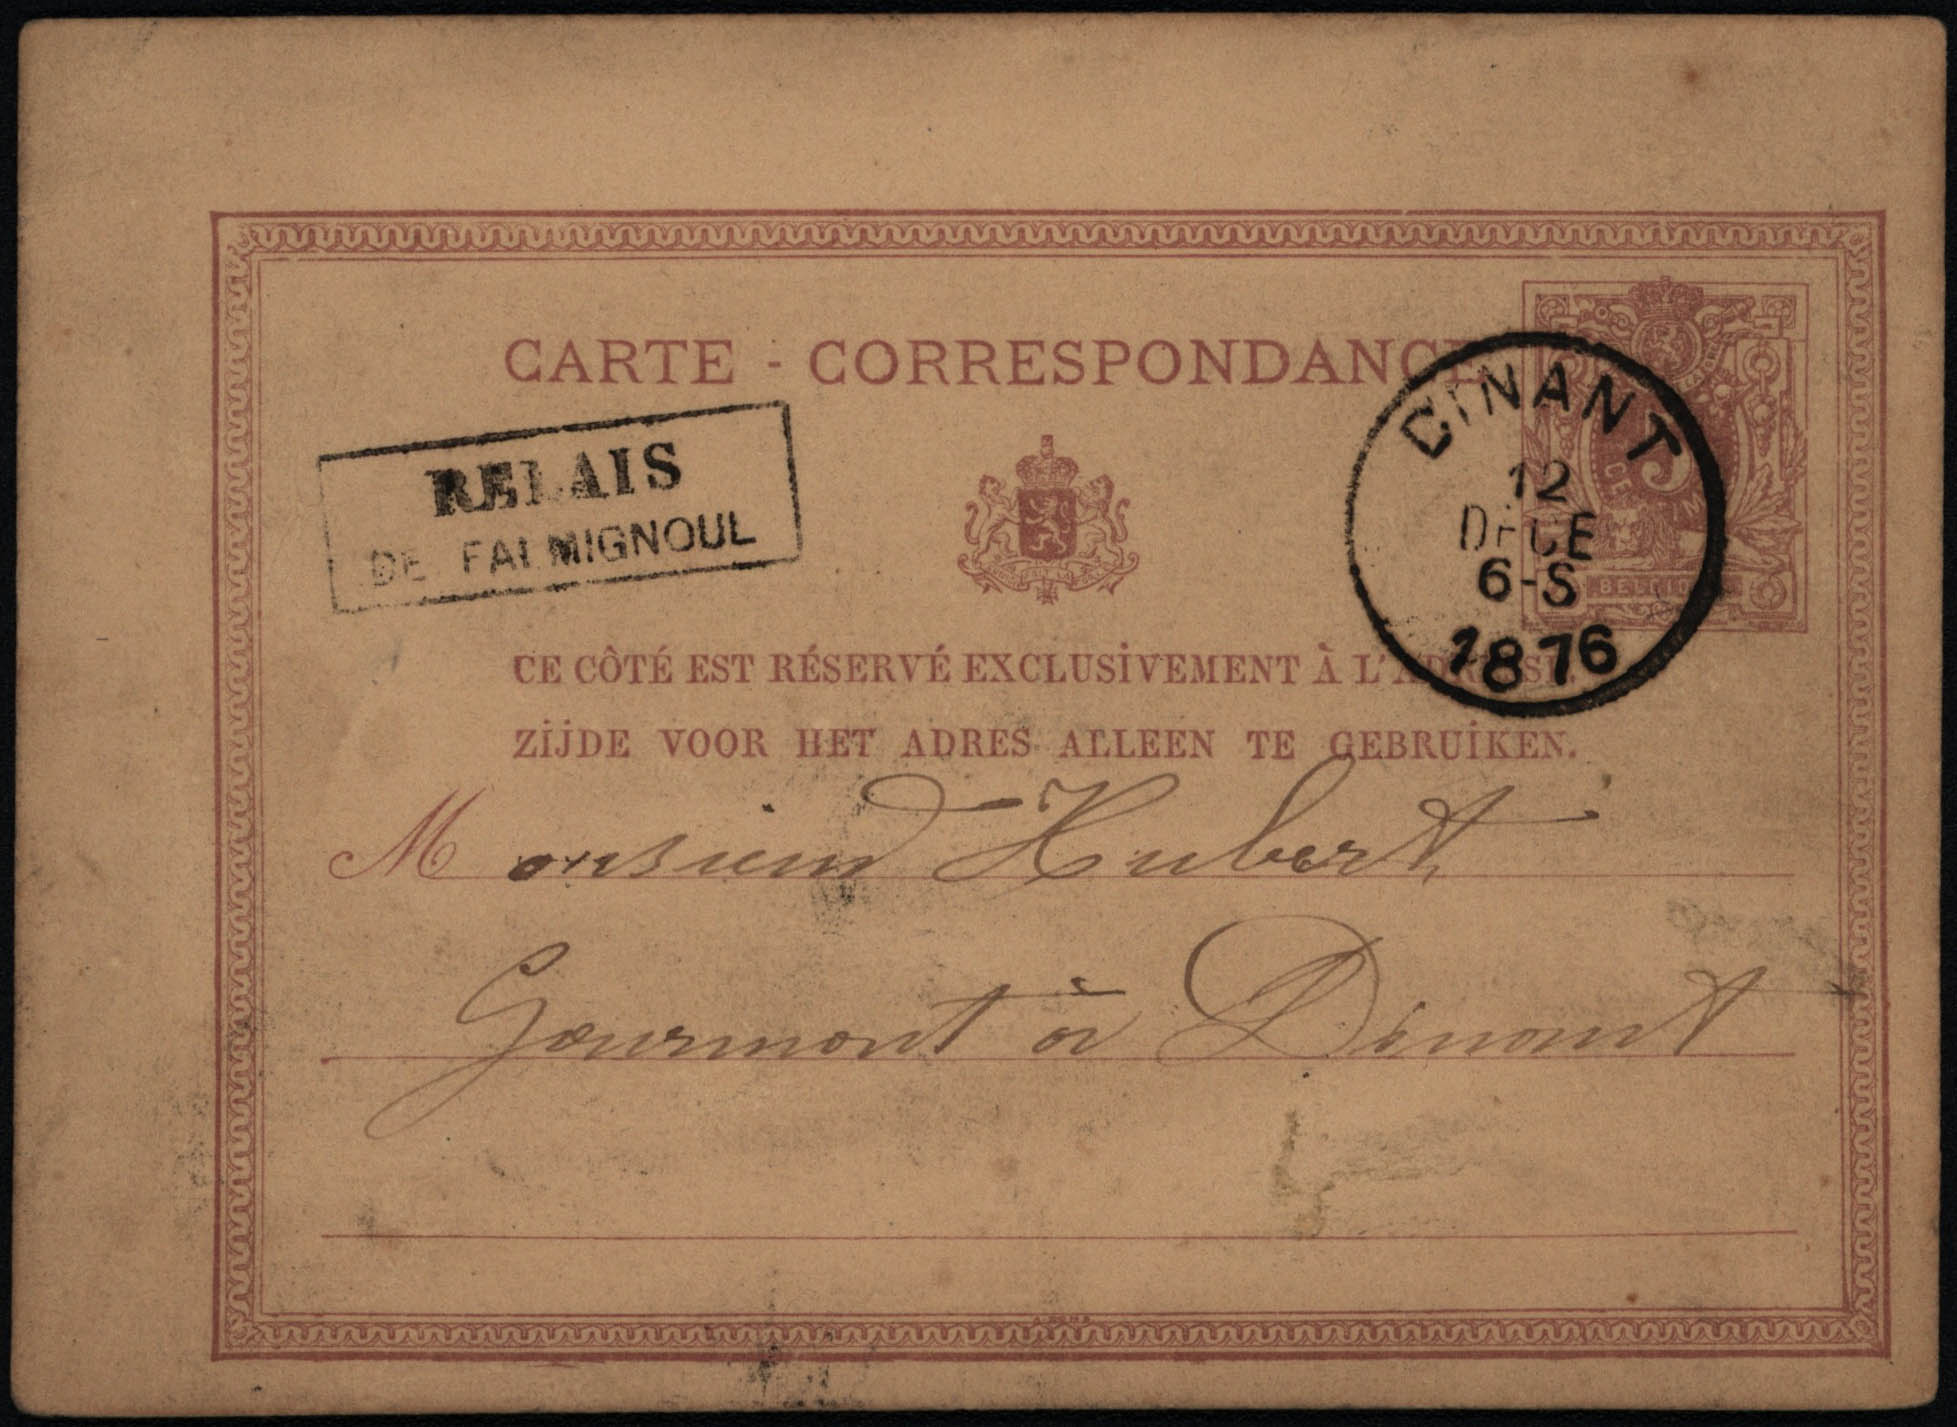 CARTE - CORRESPONDANCE
RELAIS
DE FALMIGNOUL
DINANT
12
DECE
6-S
1876
5
CE
BELGIQUE
CE CÔTÉ EST RÉSERVÉ EXCLUSIVEMENT À L'ADRESSE.
ZIJDE VOOR HET ADRES ALLEEN TE GEBRUIKEN.
Monsieur Hubert
Gourmont à Dinant